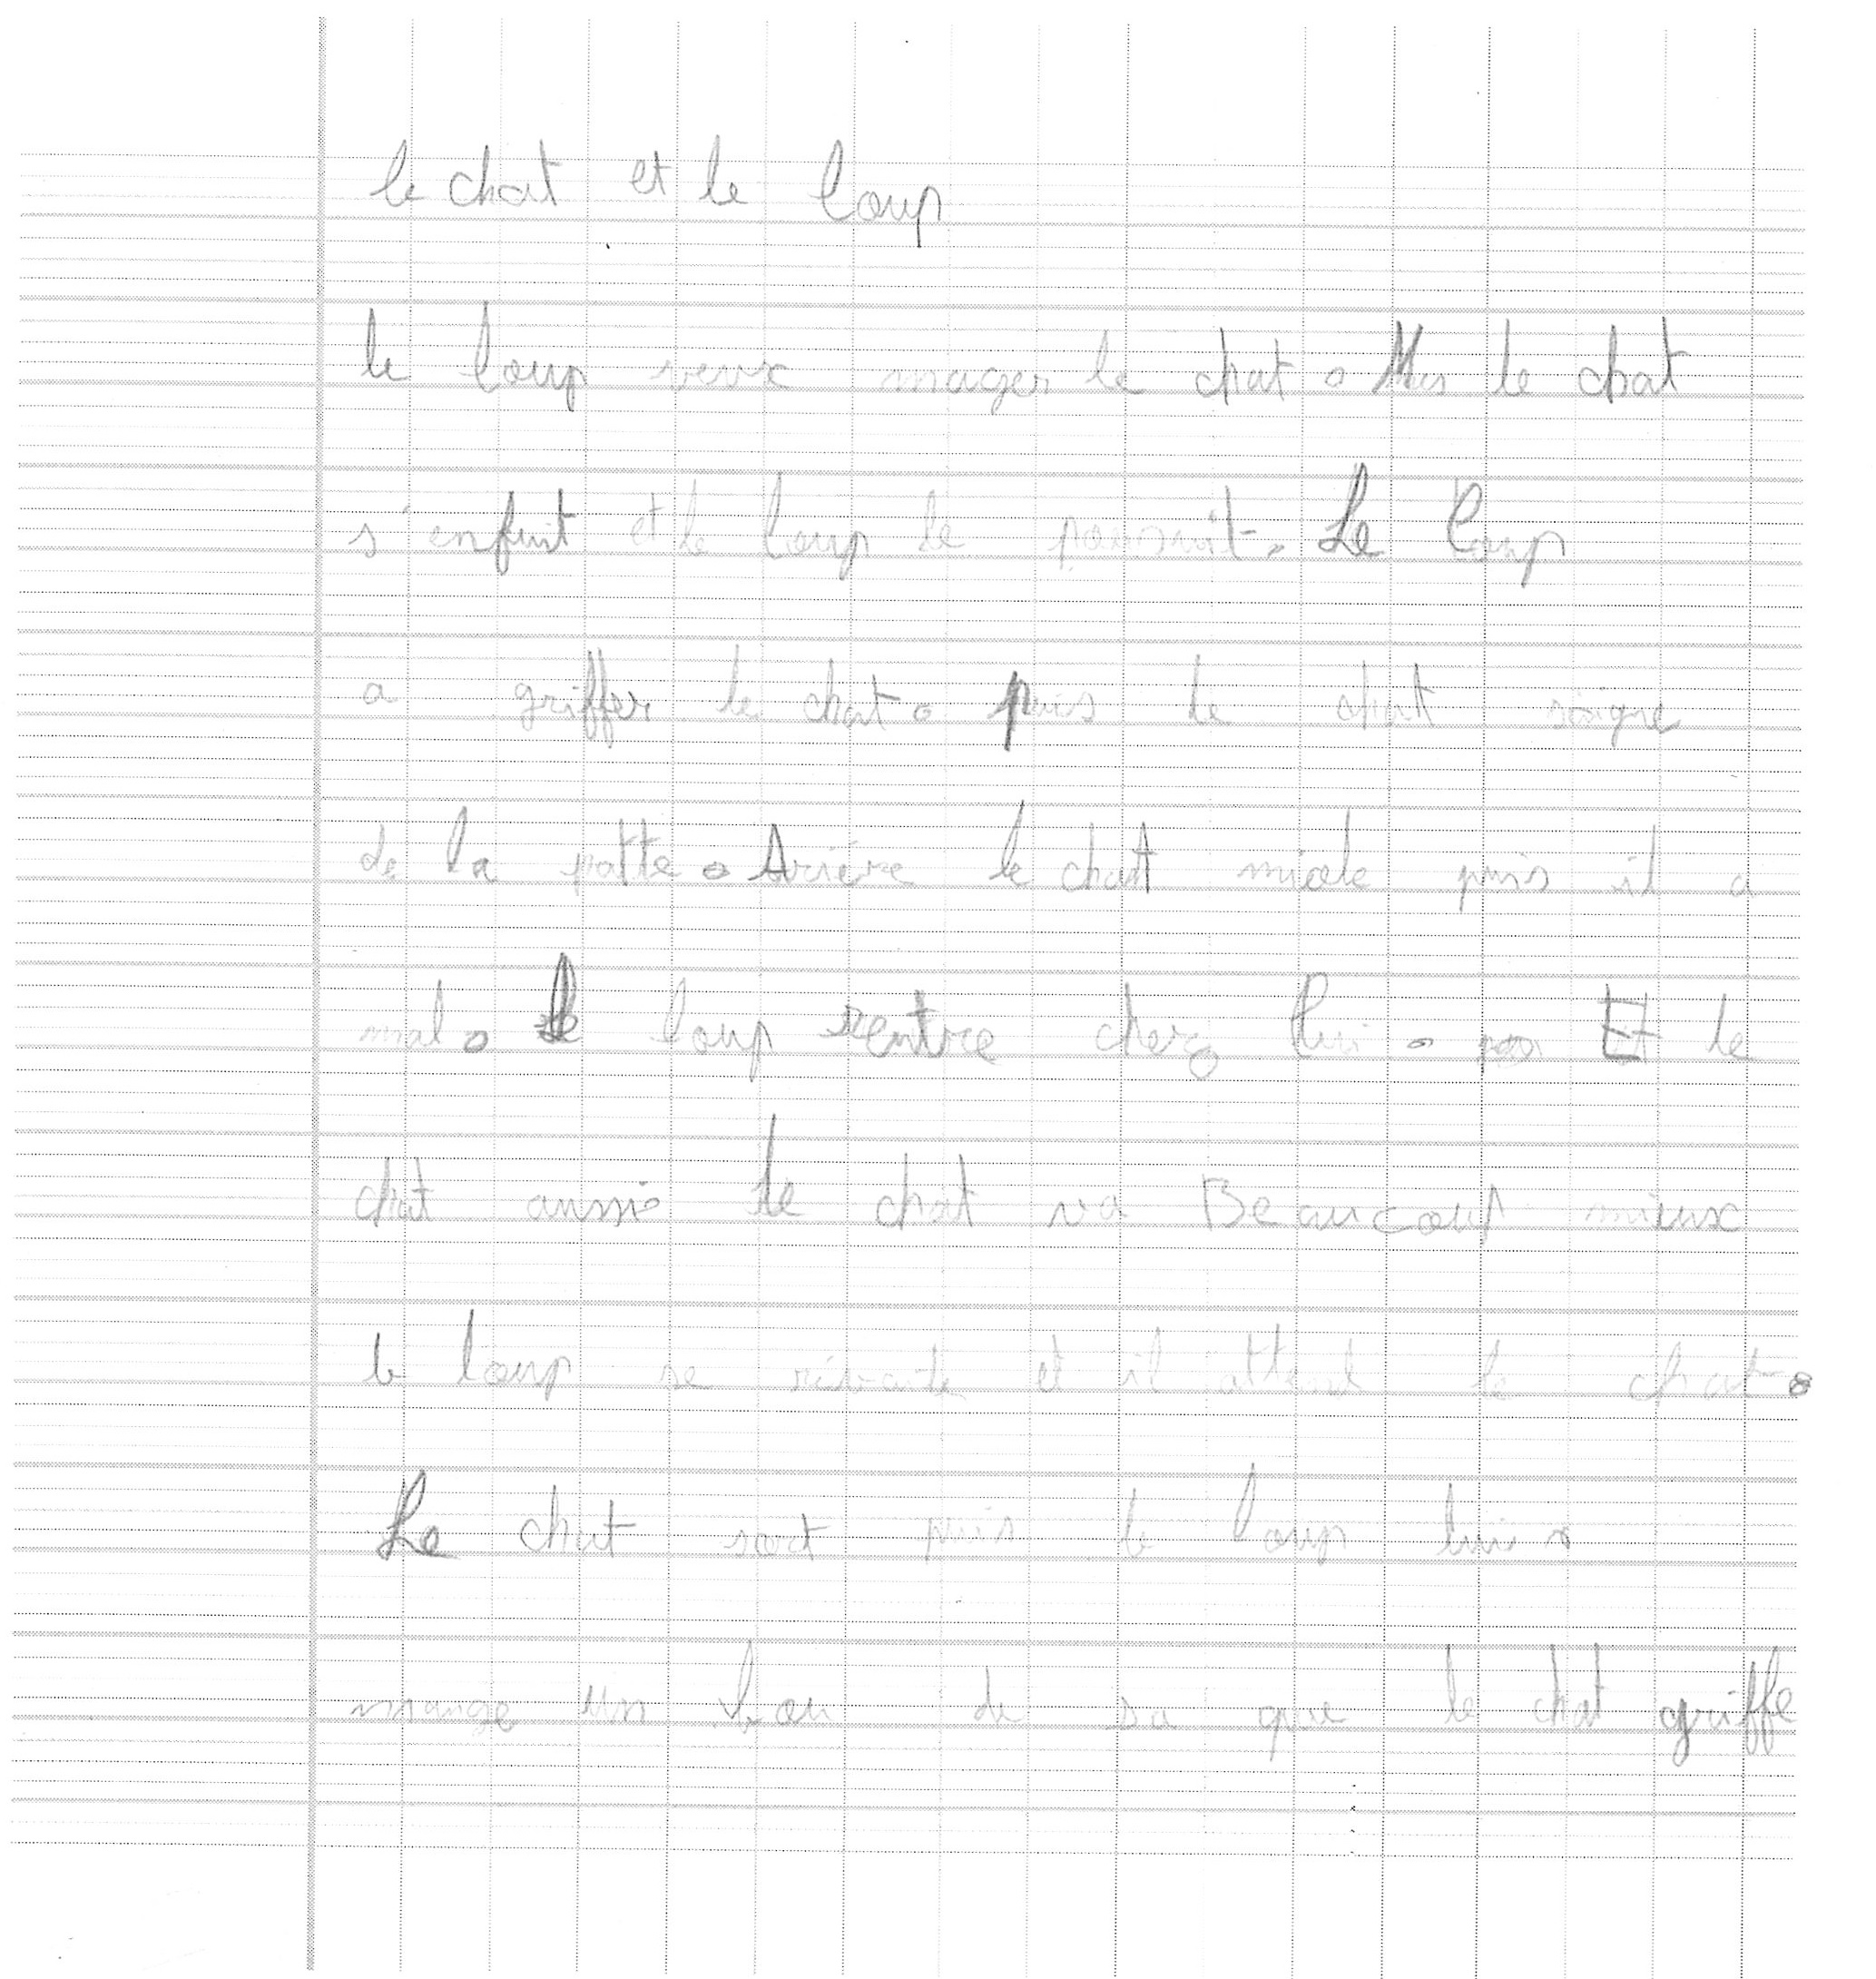 le chat et le loup
le loup veux mager le chat. Mes le chat
s'enfuit et le loup le poursuit. Le loup
a griffer le chat. puis le chat saigne
de la patte. Ariére le chat miale puis il a
mal. Le loup rentre cherz lui. Et le
chat aussi. Le chat va Beaucoup mieux
le loup se et il attend le chat.
Le chat sort puis le loup lui
mange un bou de sa que le chat griffe